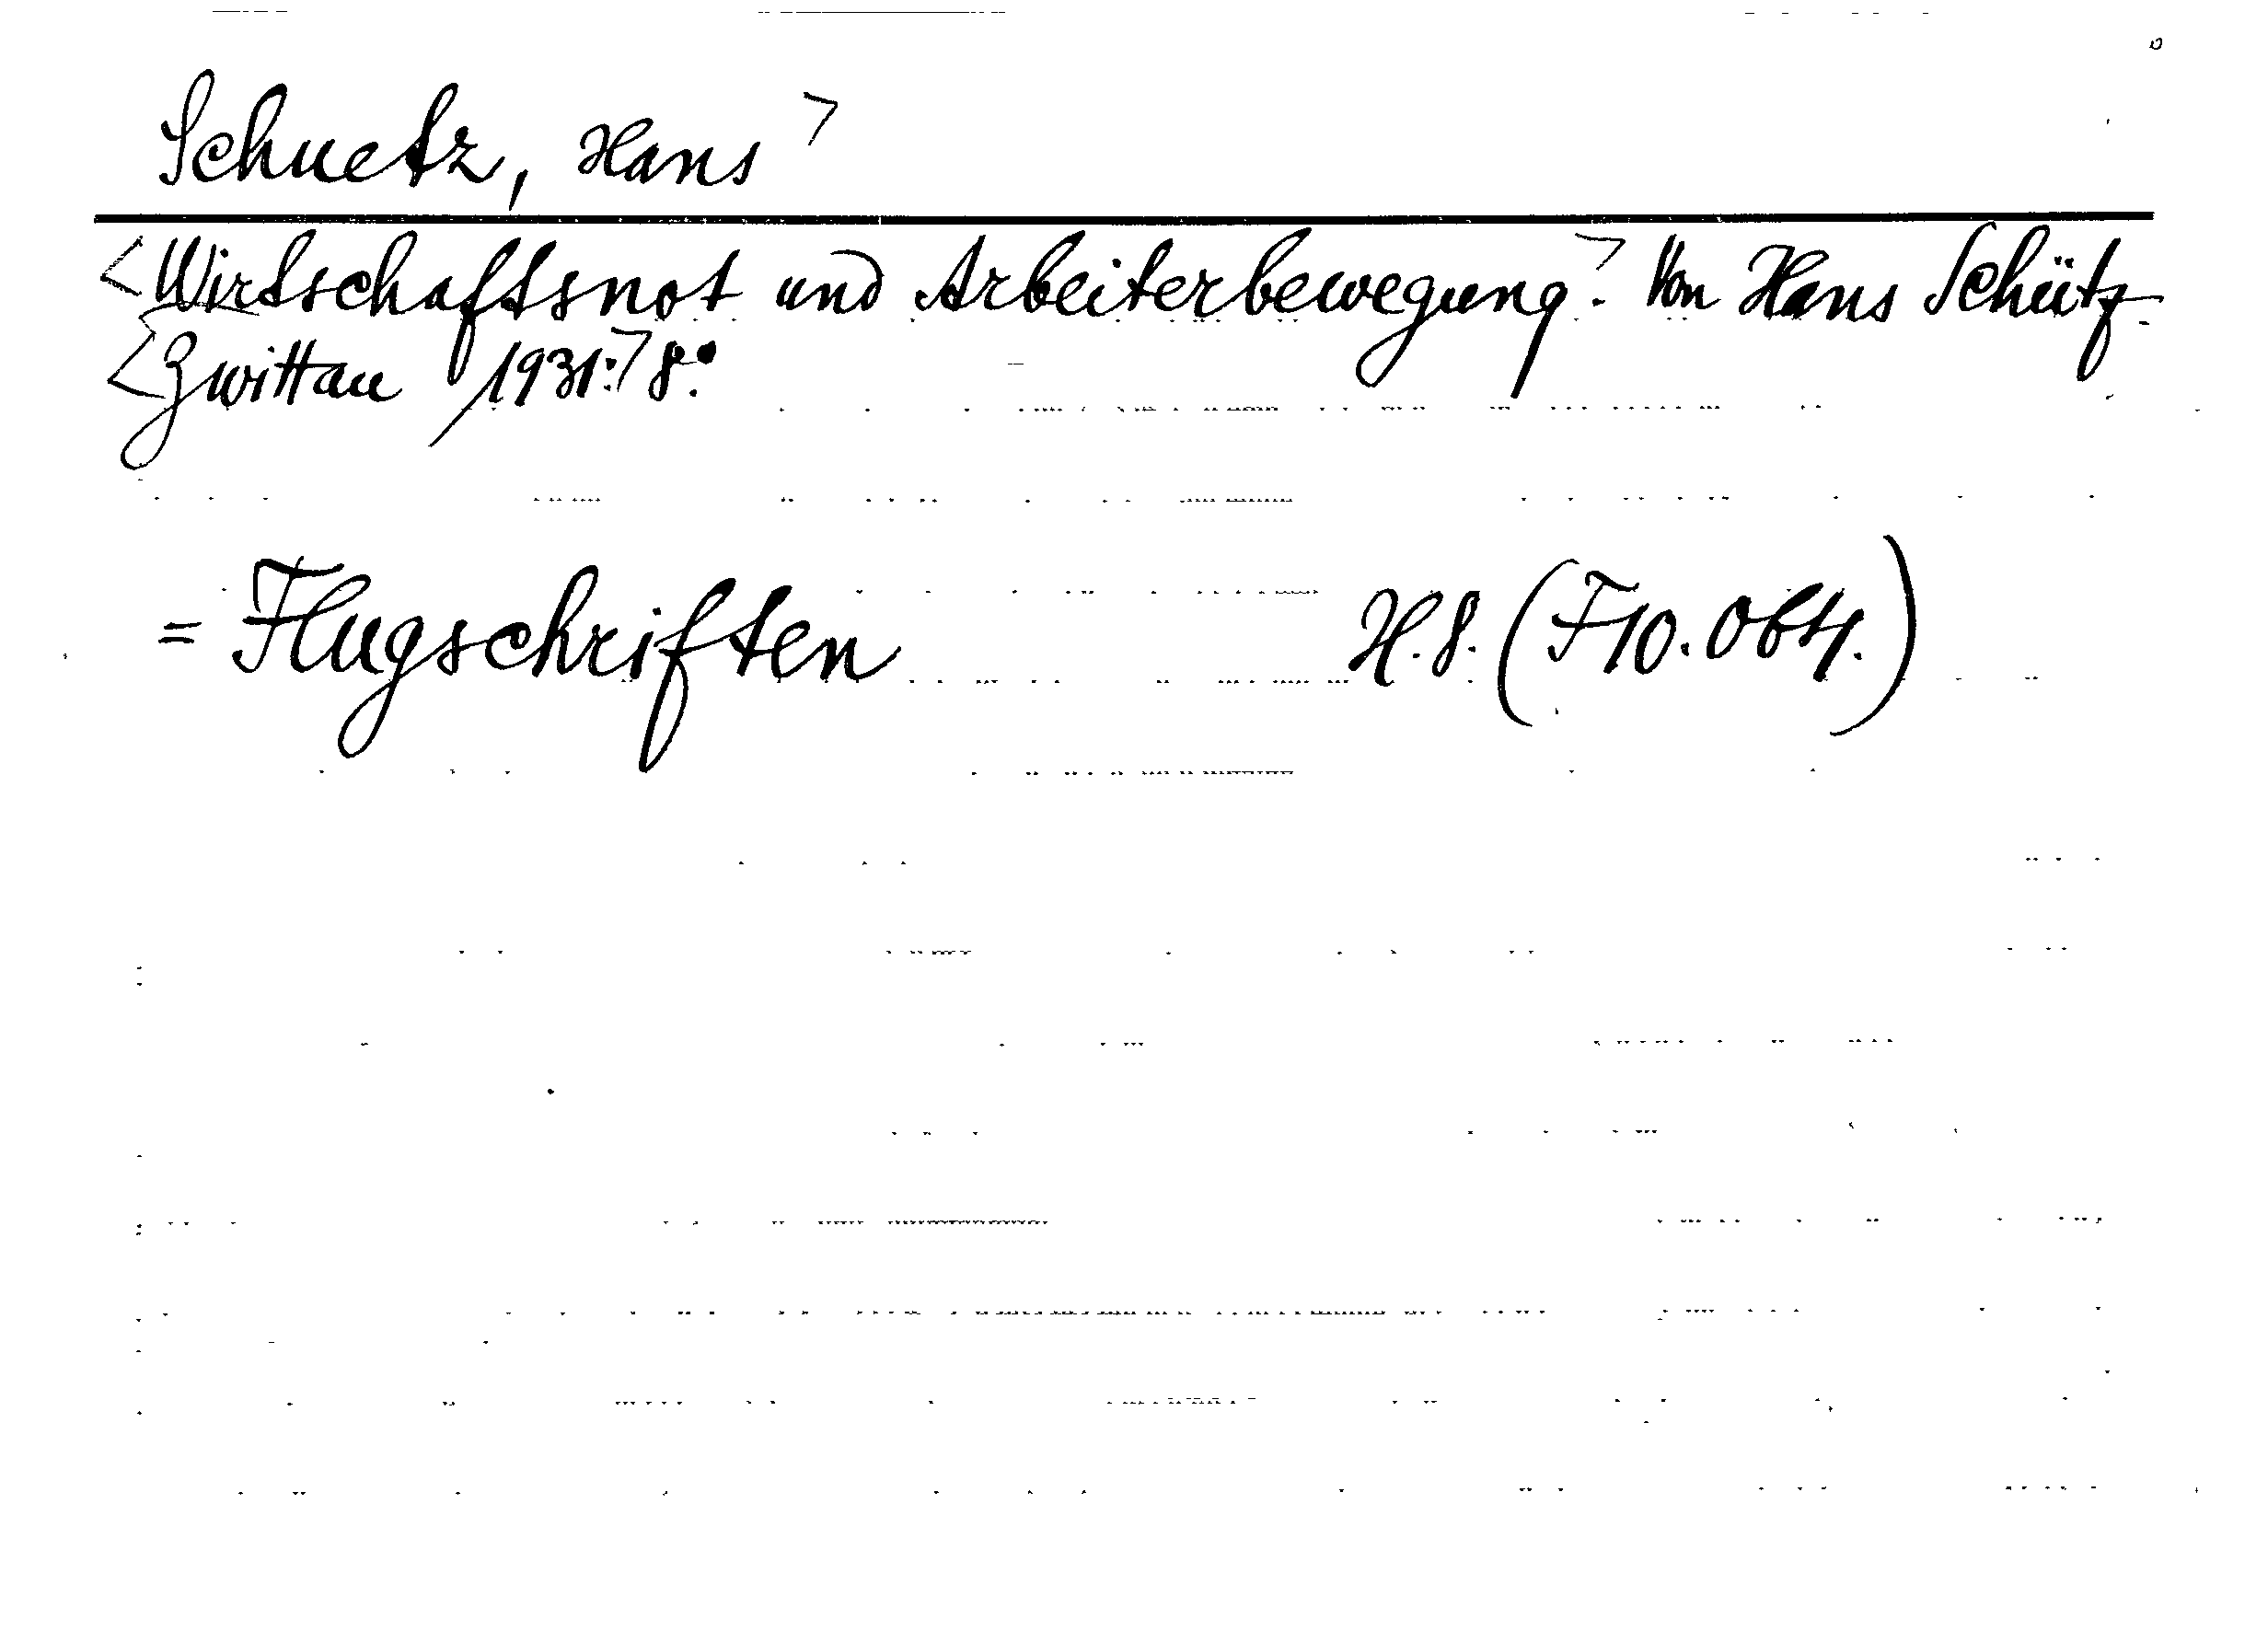 Schuetz, Hans>
<Wirtschaftsnot und Arbeiterbewegung>. Von Hans Schütz
<Zwittau 1931.> 8°.
= Flugschriften H.8. (F10.064.)